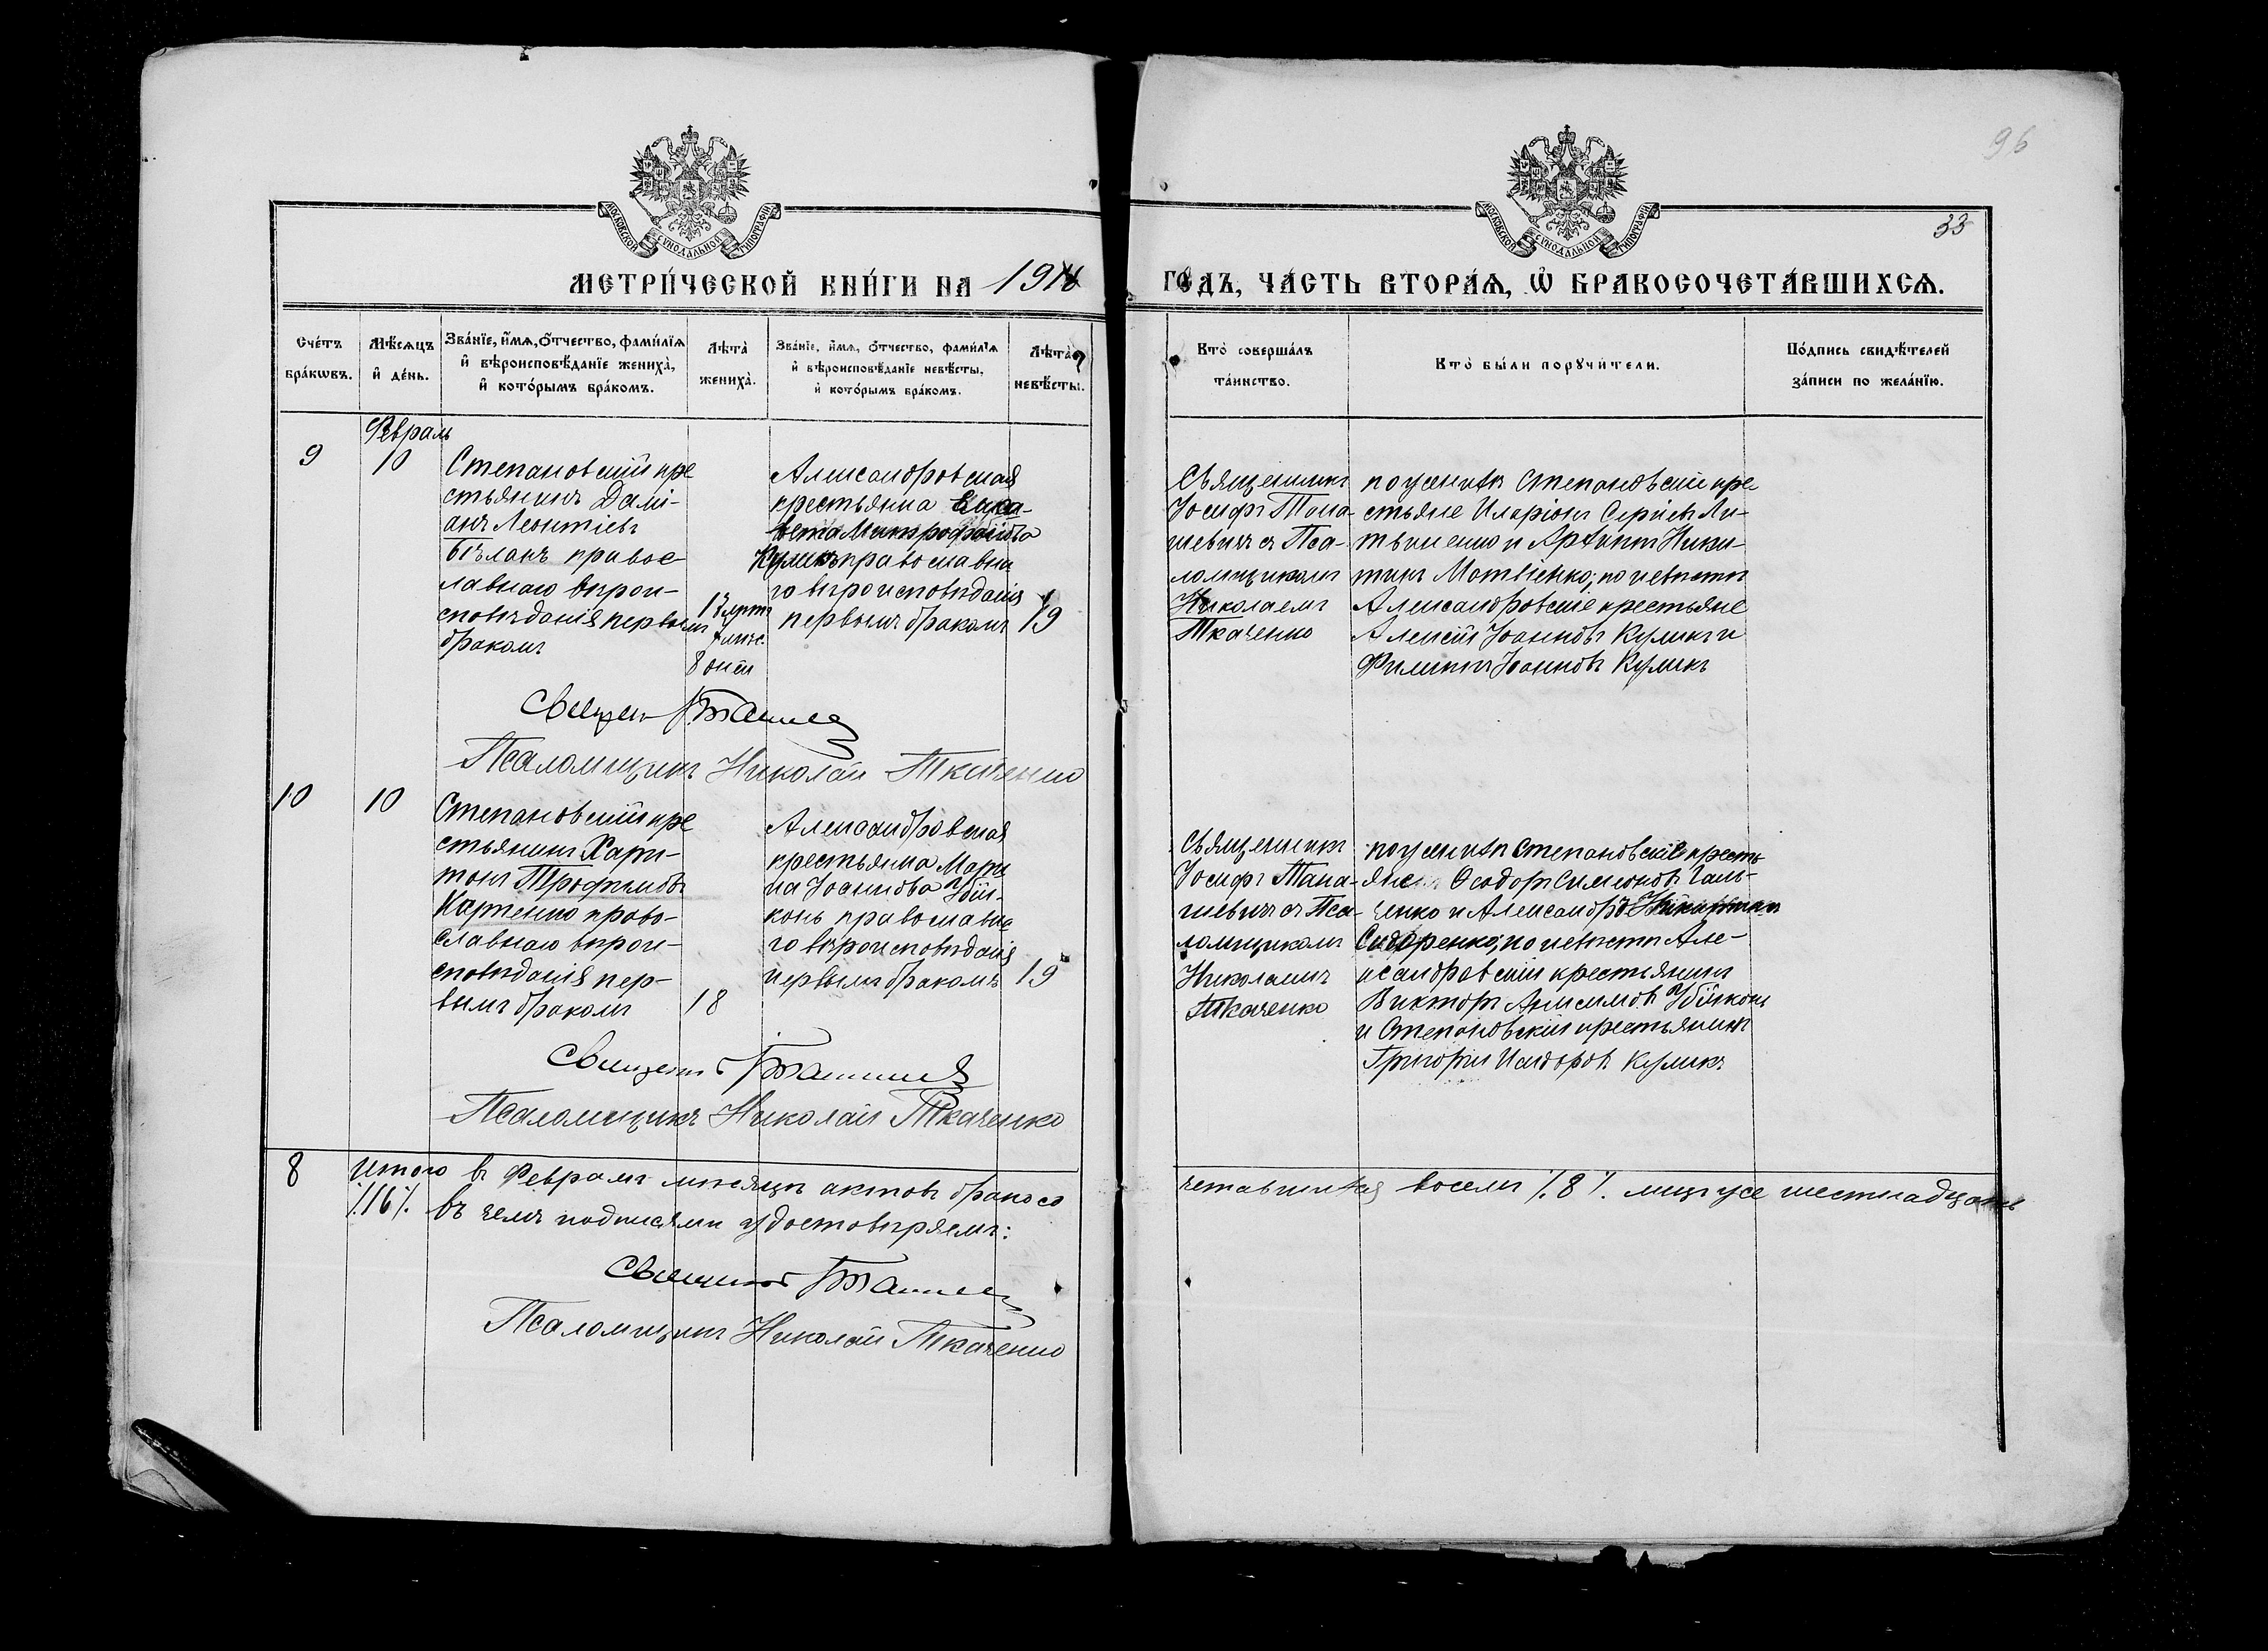 96
33
МОСКОВСКОЙ СУНОДАЛЬНОЙ ТИПОГРАФІИ
МОСКОВСКОЙ СУНОДАЛЬНОЙ ТИПОГРАФІИ
МЕТРИ́ЧЕСКОЙ КНИ́ГИ НА 191
ГО́ДЪ, ЧА́СТЬ ВТОРА́Ѧ, Ѡ҆ БРАКОСОЧЕТА́ВШИХСѦ.
Сче́тъ бра́кѡвъ.
Мѣ́сѧцъ и҆ де́нь.
Зва́нїе, и҆́мѧ, ѻ҆́тчество, фами́лїѧ
и҆ вѣроисповѣ́данїе жениха̀,
и҆ кото́рымъ бра́комъ.
Лѣ́та̀ жениха̀.
Зва́нїе, и҆́мѧ, ѻ҆́тчество, фами́лїѧ
и҆ вѣроисповѣ́данїе невѣ́сты,
и҆ кото́рымъ бра́комъ.
Лѣ́та̀ невѣ́сты.
Кто̀ соверша́лъ
та́инство.
Кто̀ бы́ли порꙋчи́тели.
По́дпись свидѣ́телей
за́писи по жела́нїю.
Февраль
9
10
Степановскій кре
стьянинъ Дамі-
анъ Леонтіевъ
Бѣланъ правос
лавнаго вѣрои-
сповѣданія первымъ
бракомъ
17 лѣтъ
мѣс.
8 дней
Александровская
крестьянка Елиса-
вета Митрофанова
Куликъ православна
го вѣроисповѣданія
первымъ бракомъ
19
Священникъ
Іосифъ Тана-
шевичъ съ Пса-
ломщикомъ
Николаемъ
Ткаченко
по женихѣ Степановскіе кре
стьяне Иларіонъ Сергіевъ Ли-
твиненко и Архипъ Ники-
тинъ Матвіенко; по невѣстѣ
Александровскіе крестьяне
Алексій Іоанновъ Куликъ и
Филиппъ Іоанновъ Куликъ
Псаломщикъ Николай Ткаченко
10
10
Степановскій кре
стьянинъ Хари-
тонъ Трофимовъ
Карпенко право-
славнаго вѣрои-
сповѣданія пер-
вымъ бракомъ
18
Александровская
крестьянка Мари
на Іоаннова Убій-
конь православна
го вѣроисповѣданія
первымъ бракомъ
19
Священникъ
Іосифъ Тана-
шевичъ съ Пса-
ломщикомъ
Николаемъ
Ткаченко
по женихѣ Степановскіе кресть
яне Ѳеодоръ Симеоновъ Галь-
ченко и Александръ Никитинъ
Сидоренко; по невѣстѣ Але-
ксандровскій крестьянинъ
Викторъ Анисимовъ Убійконь
и Степановскій крестьянинъ
Григорій Исидоровъ Куликъ
Псаломщикъ Николай Ткаченко
8
Итого въ Февралѣ мѣсяцѣ актовъ бракосо
четавшихся восемь /.8/. мущ. же шестнадцать
/.16/. въ чемъ подписями удостовѣряемъ:
Псаломщикъ Николай Ткаченко